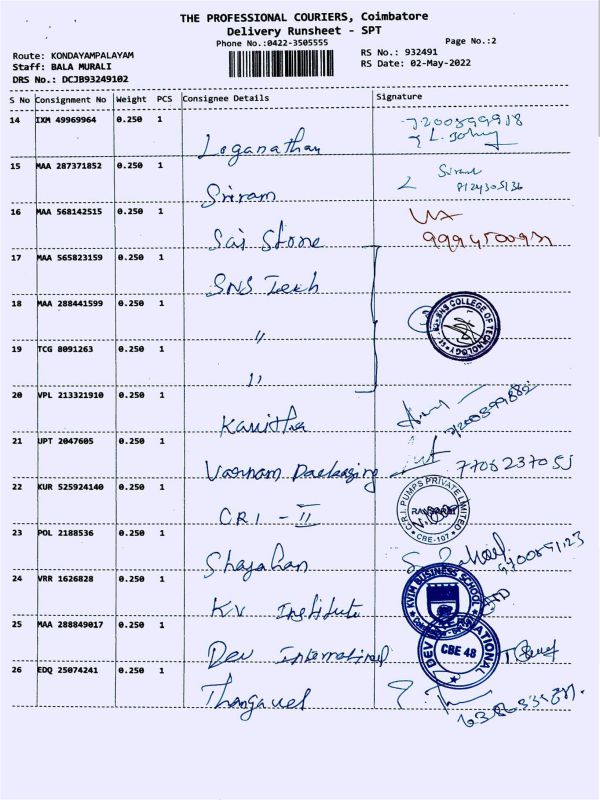 THE PROFESSIONAL COURIERS, Coimbatore
Delivery Runsheet - SPT
Phone No.:0422-3505555 Page No.:2
Route: KONDAYAMPALAYAM RS No.: 932491
Staff: BALA MURALI RS Date: 02-May-2022
DRS No.: DCJB93249102
S No Consignment No Weight PCS Consignee Details Signature
14 IXM 49969964 0.250 1 Loganathan 7200899918
15 MAA 287371852 0.250 1 Sriram Sriram 8124305136
16 MAA 568142515 0.250 1 Sai Stone
17 MAA 565823159 0.250 1 SNS Tech
18 MAA 288441599 0.250 1 〃 SNS COLLEGE OF TECHNOLOGY
19 TCG 8091263 0.250 1 〃
20 VPL 213321910 0.250 1 Kavitha
21 UPT 2047605 0.250 1 Varnam Packaging
22 KUR 525924140 0.250 1 CRI - II C.R.I. PUMPS PRIVATE LIMITED CBE-107
23 POL 2188536 0.250 1 Shajahan
24 VRR 1626828 0.250 1 KV Institute KVIM BUSINESS SCHOOL
25 MAA 288849017 0.250 1 Dev International DEV INTERNATIONAL CBE 48
26 EDQ 25074241 0.250 1 Thangavel